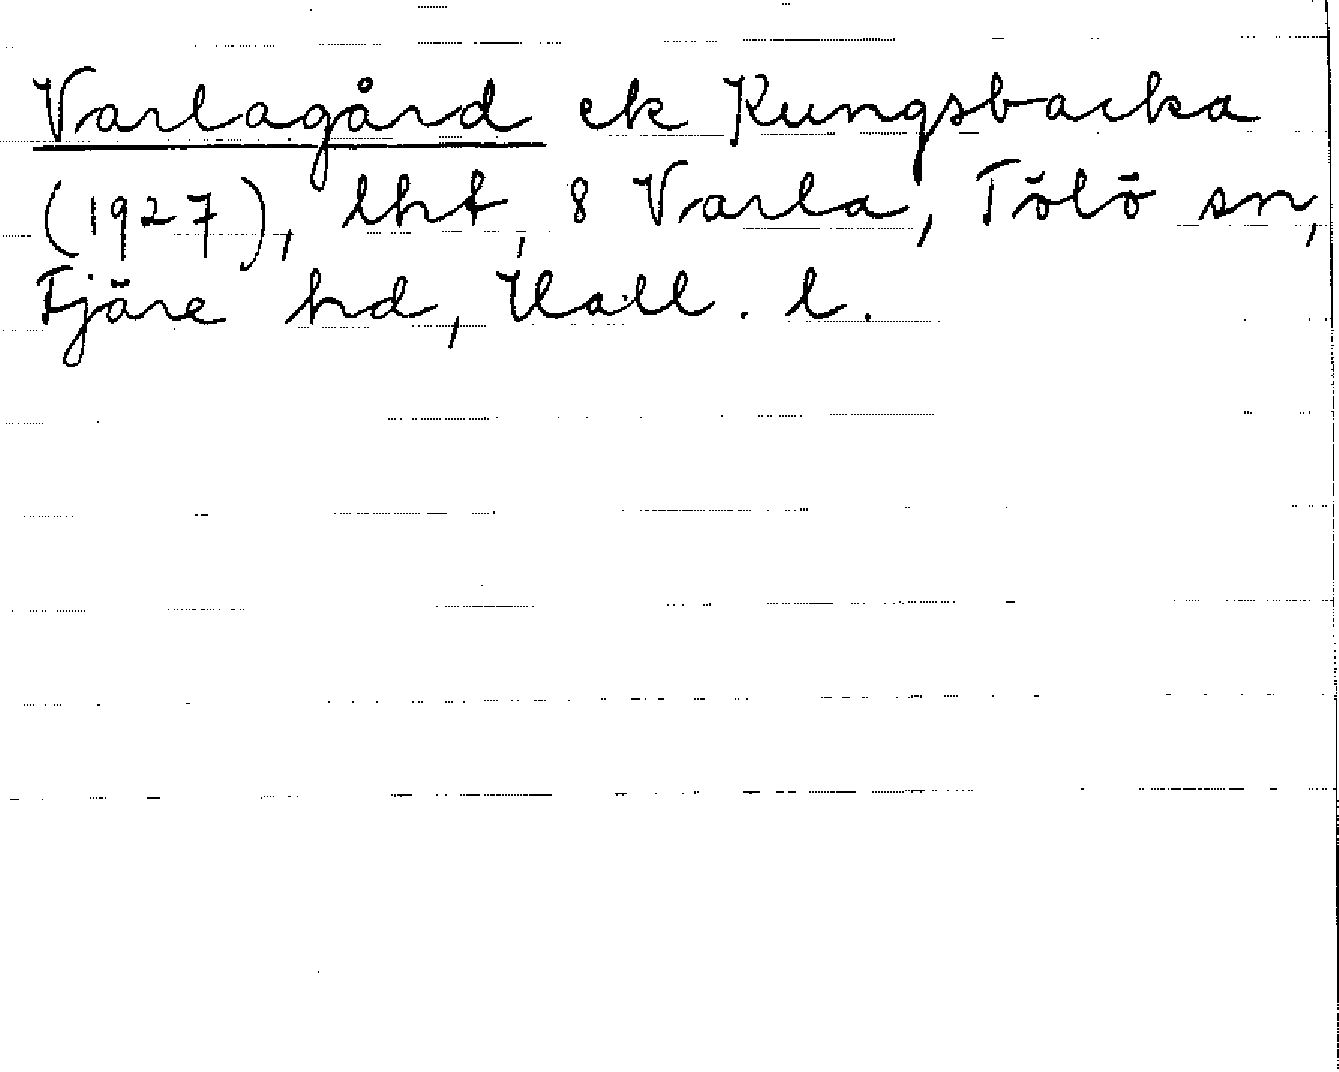 Varlagård ek Kungsbacka
(1927), lht, 8 Varla, Tölö sn,
Fjäre hd, Hall. l.